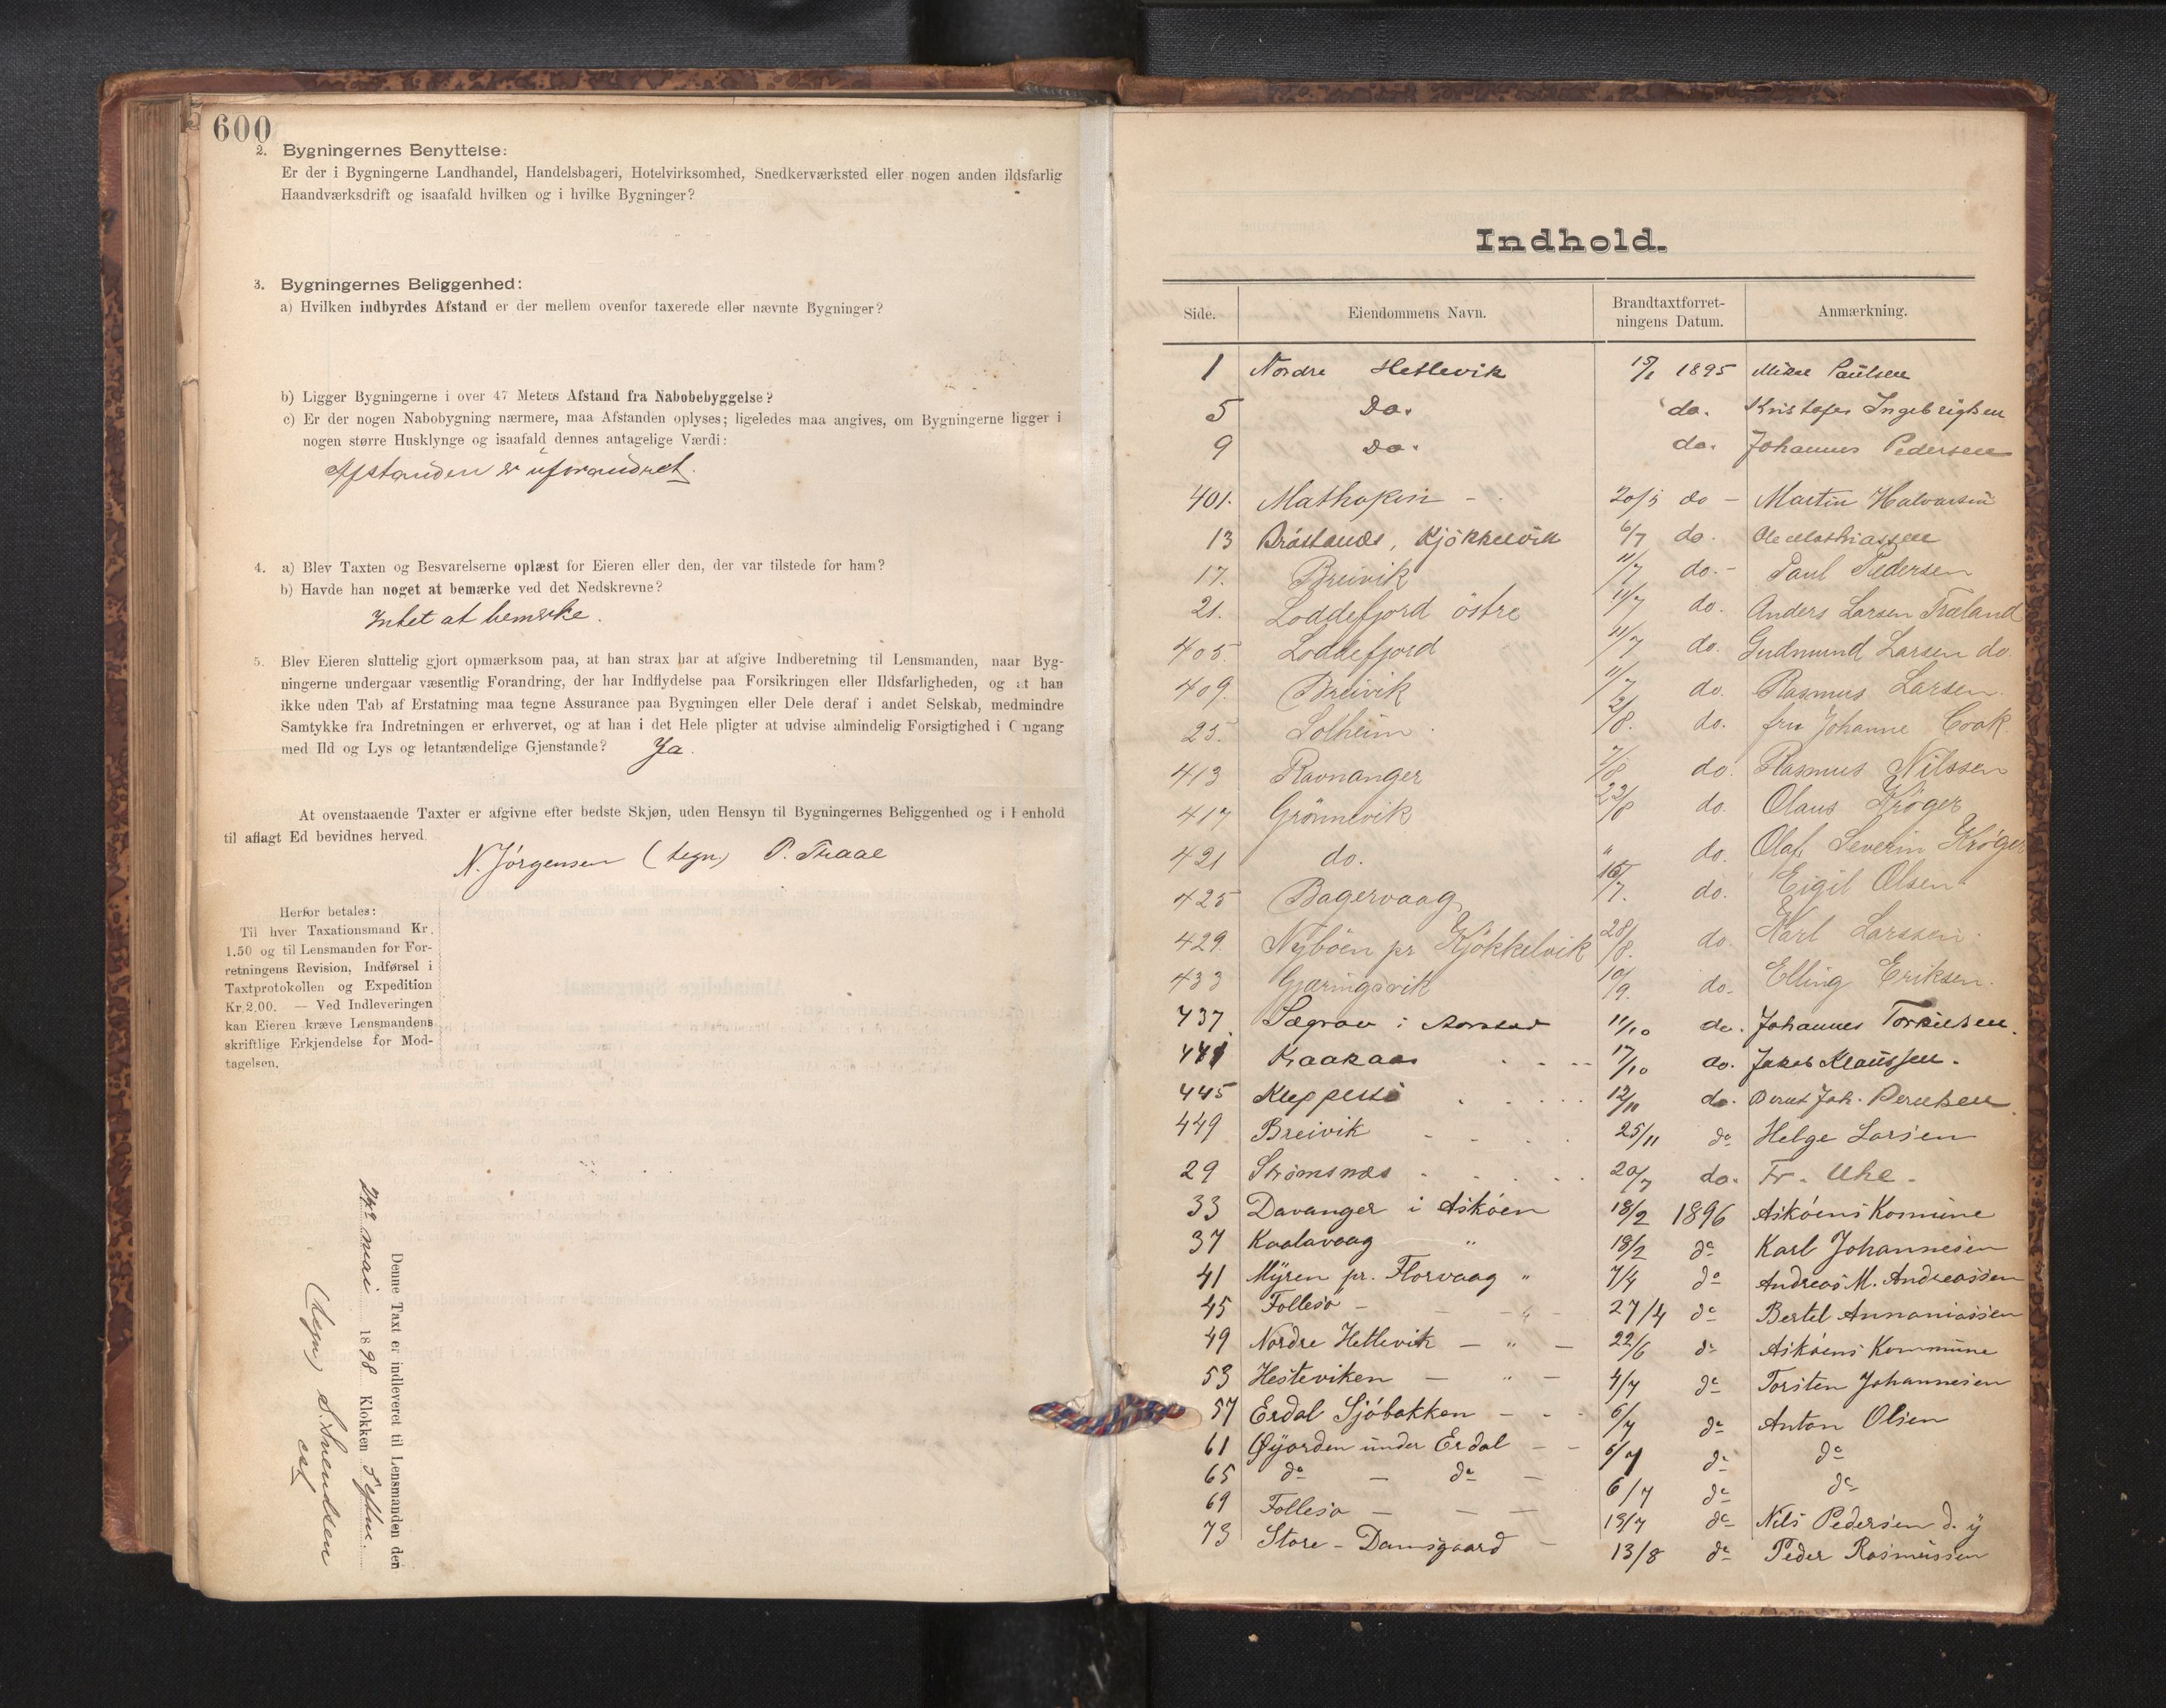 600
2. Bygningernes Benyttelse:
Er der i Bygningerne Landhandel, Handelsbageri, Hotelvirksomhed, Snedkerværksted eller nogen anden ildsfarlig
Haandværksdrift og isaafald hvilken og i hvilke Bygninger?
3. Bygningernes Beliggenhed:
a) Hvilken indbyrdes Afstand er der mellem ovenfor taxerede eller nævnte Bygninger?
b) Ligger Bygningerne i over 47 Meters Afstand fra Nabobebyggelse?
c) Er der nogen Nabobygning nærmere, maa Afstanden oplyses; ligeledes maa angives, om Bygningerne ligger i
nogen større Husklynge og isaafald dennes antagelige Værdi:
Afstanden er uforandret.
4. a) Blev Taxten og Besvarelserne oplæst for Eieren eller den, der var tilstede for ham?
b) Havde han noget at bemærke ved det Nedskrevne?
Intet at bemerke.
5. Blev Eieren sluttelig gjort opmærksom paa, at han strax har at afgive Indberetning til Lensmanden, naar Byg-
ningerne undergaar væsentlig Forandring, der har Indflydelse paa Forsikringen eller Ildsfarligheden, og at han
ikke uden Tab af Erstatning maa tegne Assurance paa Bygningen eller Dele deraf i andet Selskab, medmindre
Samtykke fra Indretningen er erhvervet, og at han i det Hele pligter at udvise almindelig Forsigtighed i Omgang
med Ild og Lys og letantændelige Gjenstande? Ja.
At ovenstaaende Taxter er afgivne efter bedste Skjøn, uden Hensyn til Bygningernes Beliggenhed og i Henhold
til aflagt Ed bevidnes herved.
N. Jørgensen (tegn) P. Traae
Herfor betales:
Til hver Taxationsmand Kr.
1.50 og til Lensmanden for For-
retningens Revision, Indførsel i
Taxtprotokollen og Expedition
Kr. 2.00. — Ved Indleveringen
kan Eieren kræve Lensmandens
skriftlige Erkjendelse for Mod-
tagelsen.
Denne Taxt er indleveret til Lensmanden den
24de mai 1898 Klokken 5 eftm.
(tegn) S. Svendsen
Indhold.
Side. Eiendommens Navn. Brandtaxtforret-
ningens Datum. Anmærkning.
1 Nordre Hetlevik 15/1 1895 Mikal Paulsen
5 Do. do. Kristofer Ingebrigtsen
9 Do. do. Johannes Pedersen
401. Mathopen - 20/5 do - Martin Halvorsen
13 Bråstande, Kjøkkelvik 6/7 do. Ole Mathiassen
17. Breivik 11/7 do. - Paul Pedersen
21. Loddefjord östre 11/7 do. Anders Larsen Træland
405. Loddefjord 11/7 do. Gudmund Larsen do.
409. Breivik 11/7 do. Rasmus Larsen.
25. Solheim 2/8. do. fru Johanne Cook.
413 Ravnanger 7/8 do. Rasmus Nilssen
417 Grönnevik 22/8 do. Olaus Krøger
421 do. " do. Olaf Severin Krøger
425 Bagervaag 16/7. do. Eigil Olsen
429. Nyböen pr Kjökkelvik 28/8. do. Karl Larssen.
433 Gjæringsvik 10/9. do. Elling Eriksen.
437. Sægrov i Aarstad 11/10 do. Johannes Torkilsen.
441 Kraakaas 17/10 do. Jakob Klaussen.
445 Kleppestö 12/11 do. Bernt Joh. Berntsen.
449 Breivik 25/11 do Helge Larsen
29 Strömsnæs 20/7 do. Fr. Uhe.
33 Davanger i Askøen 18/2 1896 Askøens Komune
37 Kaalavaag " 18/2 do Karl Johannesen
41 Myren pr. Florvaag " 7/4 do Andreas M. Andreassen
45 Follesø - " - 27/4 do Bertel Annaniassen
49 Nordre Hetlevik - " - 22/6 do Askøens Kommune
53 Hesteviken - " - 4/7 do Torsten Johannesen
57 Erdal Sjøbakken - - 6/7 do Anton Olsen
61 Øyjorden under Erdal - - 6/7 do do
65 do - do - 6/7 do do
69 Follesø - - - 13/7 do Nils Pedersen d. y
73 Store-Damsgaard - 13/8 do Peder Rasmussen